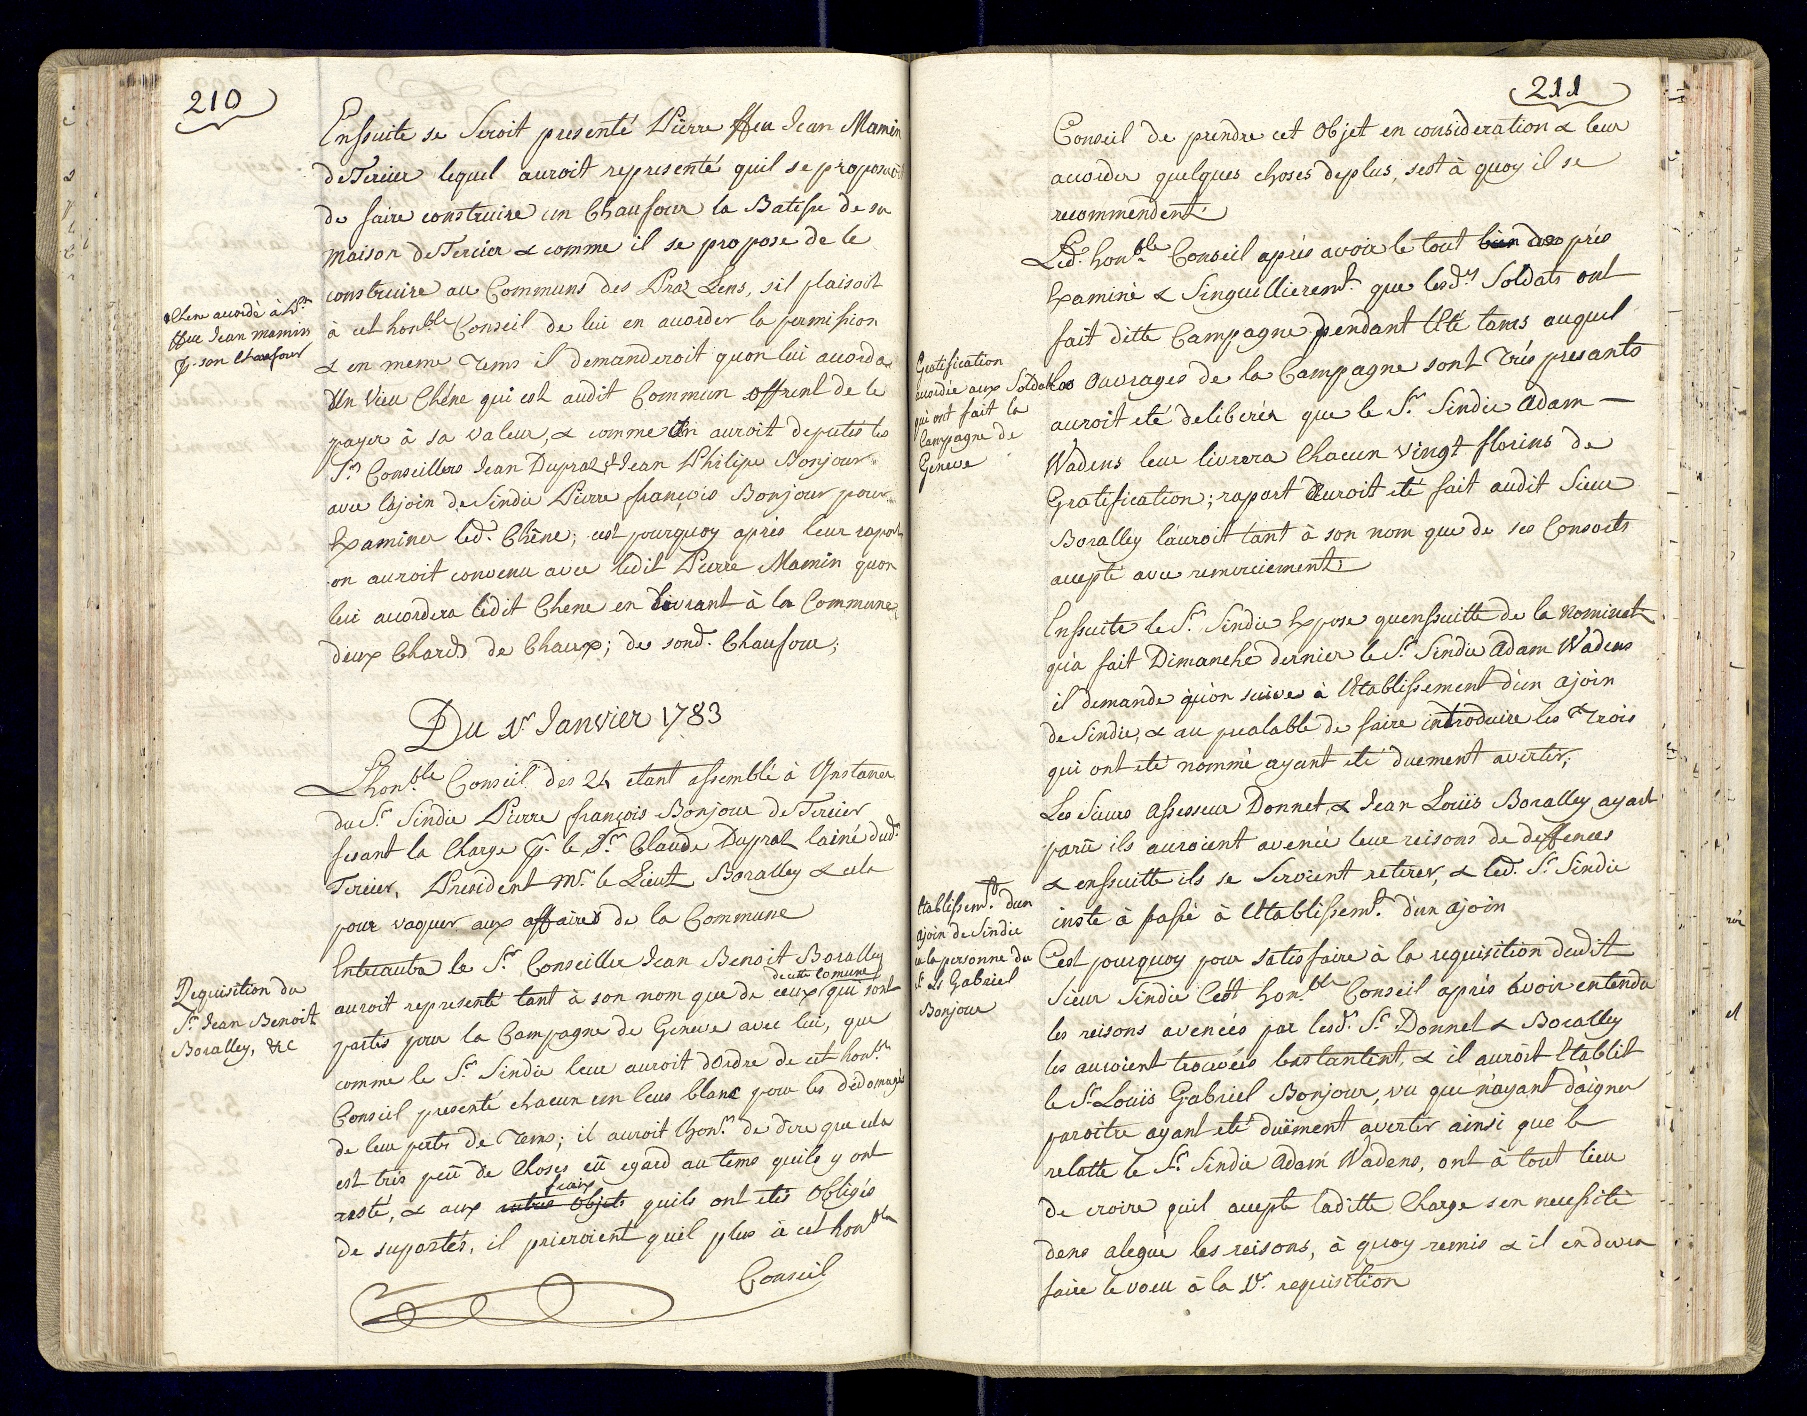 210
Ensuite se Seroit presenté Pierre ffeu Jean Mamin
de Tercier lequel auroit representé quil se proposeroit
de faire construire un Chaufour la Batisse de sa
maison de Tercier & comme il se propose de le
construire au Communs des Praz Lens, sil plaisoit
à cet hon.ble Conseil de lui en accorder la permission
& en meme Tems il demanderoit quon lui accorda
Un vieu Chêne qui est audit Commun offrent de le
payer à sa valeur, & comme On auroit deputés les
Srs Conseillers Jean Dupraz & Jean Philipe Bonjour
avec lajoin de Sindic Pierre françois Bonjour pour
Examiner led. Chêne; cest pourquoy après leur raport
on auroit convenu avec ledit Pierre Mamin quon
lui accordera ledit Chene en livrant à la Commune
deux Chards de Chaux; de sond. Chaufour;
Chene accordé à Pre
ffeu Jean Mamin
p. son Chaufour
Du 1r Janvier 1783
Lhon.ble Conseil des 24 etant assemblé à Ynstance
du Sr Sindic Pierre françois Bonjour de Tercier
fesant la Charge p. le Sr Claude Dupraz lainé dud.
Tercier, President Mr le Lieut Boralley & cela
pour vaquer aux affaires de la Commune
Entrauta le Sr Conseiller Jean Benoit Boralley
de cette Comune
auroit representé tant à son nom que de ceux qui sont
partis pour la Campagne de Geneve avec lui, que
comme le Sr Sindic leur auroit dOrdre de cet hon.ble
Conseil presenté chacun un leus blanc pour les dédomagés
de leur perte de Tems; il auroit lhon.r de dire que cela
est très peû de Choses eû egard au tems quils y ont
fraix
resté, & aux autres Objets quils ont etés Obligés
de suportés, il prieroient quil plus à cet hon.ble
Conseil
Requisition du
Sr Jean Benoit
Boralley, &c
211
Conseil de prendre cet Objet en consideration & leur
accorder quelques choses deplus, sest à quoy il se
recommendent
Led. hon.ble Conseil après avoir le tout bien des près
Examiné & Singuillierem.t que lesd.s Soldats ont
fait ditte Campagne pendant lEté tams auquel
les Ouvrages de la Campagne sont Très presants
auroit eté deliberés que le Sr Sindic Adam
Wadens leur livrera Chacun vingt florins de
Gratification; raport Auroit eté fait audit Sieur
Boralley lauroit tant à son nom que de ses Consorts
acepté avec remerciement
Gratification
accordée aux Soldats
qui ont fait la
Campagne de
Geneve
Ensuite le Sr Sindic Expose quensuitte de la Nominat.
qu'a fait Dimanche dernier le Sr Sindic Adam Wadens
il demande qu'on suive à lEtablissement d'un ajoin
de Sindic, & au prealable de faire introduire les Trois
qui ont eté nommé ayant eté duement avertir,
Les Sieurs Assesseur Donnet, & Jean Louïs Boralley ayant
parû ils auroient avencé leur reisons de deffences
& ensuitte ils se Seroient retirer, & led. Sr Sindic
inste à passé à lEtablissem.t d'un ajoin
Etablissem.t d'un
ajoin de Sindic
en la personne du
Sr Ls Gabriel
Bonjour
Cest pourquoy pour satisfaire à la requisition deudit
Sieur Sindic Cest hon.ble Conseil après avoir entendu
les reisons avencés par lesd.s Srs Donnet & Boralley
les auroient trouvées bastantent, & il auroit Etablit
le Sr Louïs Gabriel Bonjour, vu que nayant daigner
paroitre ayant eté duëment avertir ainsi que le
relatte le Sr Sindic Adam Wadens, ont à tout lieu
de croire quil acepte laditte Charge sen necessité
dens alegue les reisons, à quoy remis & il en devra
faire le voeu à la 1re requisition